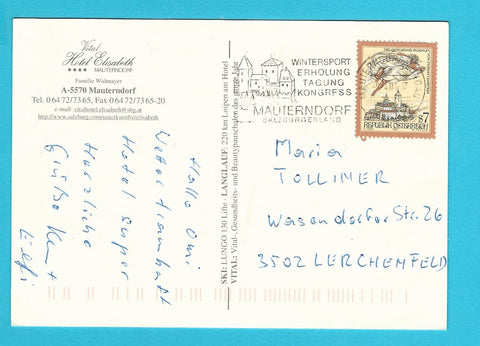 Vital
Hotel Elisabeth
**** MAUTERNDORF
Familie Widmayer
A-5570 Mauterndorf
Tel. 06472/7365, Fax 06472/7365-20
e-mail: vitalhotel.elisabeth@sbg.at
Hallo Omi
Wetter traumhaft
Hotel super
Herzliche
Grüße
SKI: LUNGO 130 Lifte · LANGLAUF: 220 km Loipen am Hotel
VITAL: Vital-, Gesundheits- und Beautypauschalen das ganze Jahr
WINTERSPORT
ERHOLUNG
TAGUNG
KONGRESS
MAUTERNDORF
SALZBURGERLAND
REPUBLIK ÖSTERREICH
S7
Maria
TOLLINER
Wasendorfer Str. 26
3502 LERCHENFELD